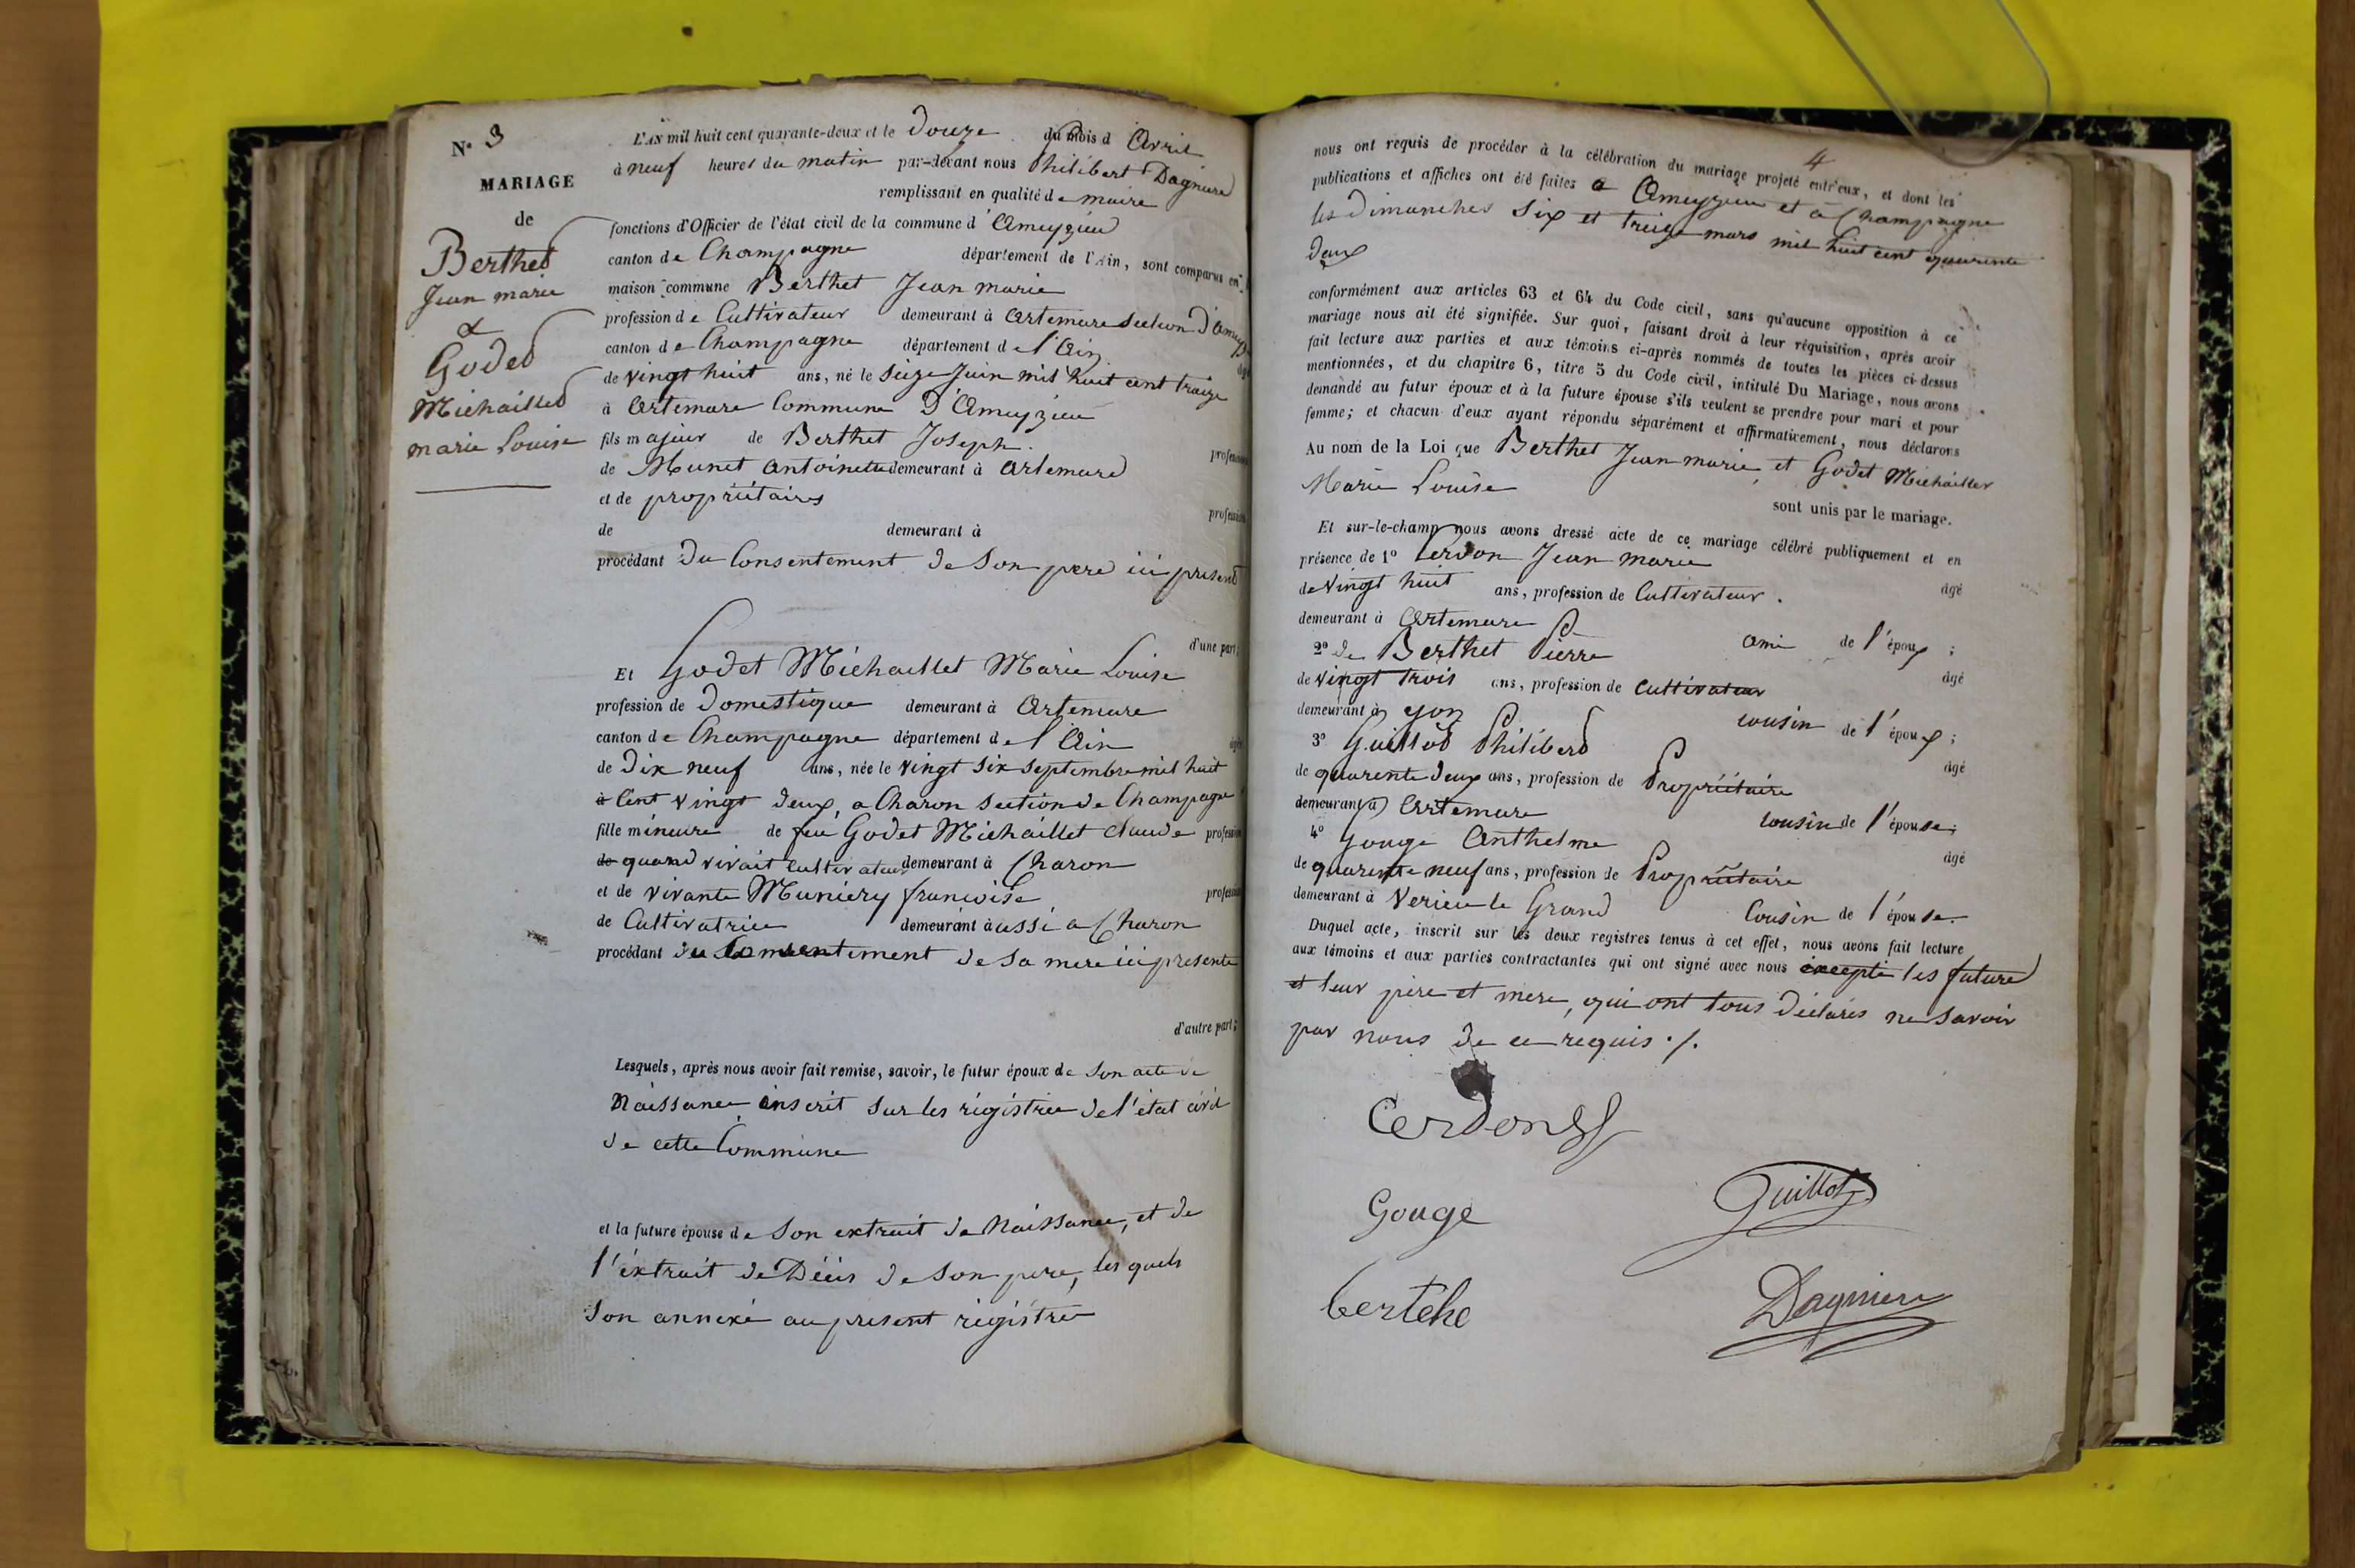 N° 3
MARIAGE
de
Berthet
Jean marie
&
Godet
Michaillet
marie Louise
L'AN mil huit cent quarante-deux et le Douze du mois d Avril
à neuf heures du matin par-devant nous Philibert Dagniere
remplissant en qualité de maire
fonctions d'Officier de l'état civil de la commune d'Ameyzieu
canton de Champagne département de l'Ain, sont comparus en
maison commune Berthet Jean marie
profession de Cultivateur demeurant à Artemare section d'Ameyz
canton de Champagne département de l'Ain. âgé
de vingt huit ans, né le Seize Juin mil huit cent traize
à Artemare Commune D'Ameyzieu
fils majeur de Berthet Joseph. profession
de Munet Antoinette demeurant à Artemare
et de propriétaires profession
de demeurant à
procédant du Consentement de son pere ici present
d'une part;
Et Godet Michaillet Marie Louise
profession de Domestique demeurant à Artemare
canton de Champagne département de l'Ain âgée
de Dix neuf ans, née le vingt six septembre mil huit
à Cent vingt deux, a Charon section de Champagne
fille mineure de feu Godet Michaillet claude profession
de quand vivait cultivateur demeurant à Charon
et de vivante Muniery francoise profession
de Cultivatrice demeurant à ussi a Charon
procédant du Consentement de sa mere ici presente
d'autre part;
Lesquels, après nous avoir fait remise, savoir, le futur époux de son acte de
Naissance inscrit sur les régistres de l'état civil
de cette Commune
et la future épouse de son extrait de Naissance, et de
l'éxtrait de Décès de son pere, les quels
son annexé au present régistre
4
nous ont requis de procéder à la célébration du mariage projeté entr'eux, et dont les
publications et affiches ont été faites a Ameyzieu et à Champagne
les Dimanches six et treize mars mil huit cent quarente
Deux
conformément aux articles 63 et 64 du Code civil, sans qu'aucune opposition à ce
mariage nous ait été signifiée. Sur quoi, faisant droit à leur réquisition, après avoir
fait lecture aux parties et aux témoins ci-après nommés de toutes les pièces ci-dessus
mentionnées, et du chapitre 6, titre 5 du Code civil, intitulé Du Mariage, nous avons
demandé au futur époux et à la future épouse s'ils veulent se prendre pour mari et pour
femme; et chacun d'eux ayant répondu séparément et affirmativement, nous déclarons
Au nom de la Loi que Berthet Jean marie, et Godet Michaillet
Marie Louise
sont unis par le mariage.
Et sur-le-champ nous avons dressé acte de ce mariage célébré publiquement et en
présence de 1° Cerdon Jean marie
âgé
de Vingt huit ans, profession de Cultivateur.
demeurant à Artemare ami de l'époux;
2° de Berthet Pierre
âgé
de vingt trois ans, profession de cultivateur
demeurant à yon cousin de l'époux;
3° Guillot Philibert
âgé
de quarente deux ans, profession de Propriétaire
demeurant à Artemare cousin de l'épouse;
4° Gouge Anthelme
âgé
de quarente neuf ans, profession de Propriétaire
demeurant à Verieu le Grand Cousin de l'épouse.
Duquel acte, inscrit sur les deux registres tenus à cet effet, nous avons fait lecture
aux témoins et aux parties contractantes qui ont signé avec nous éxcepté les future
et leur père et mere, qui ont tous déclarés ne savoir
par nous de ce requis ./.
Cerdon
Gouge
Guillot
bertehe
Dagniere